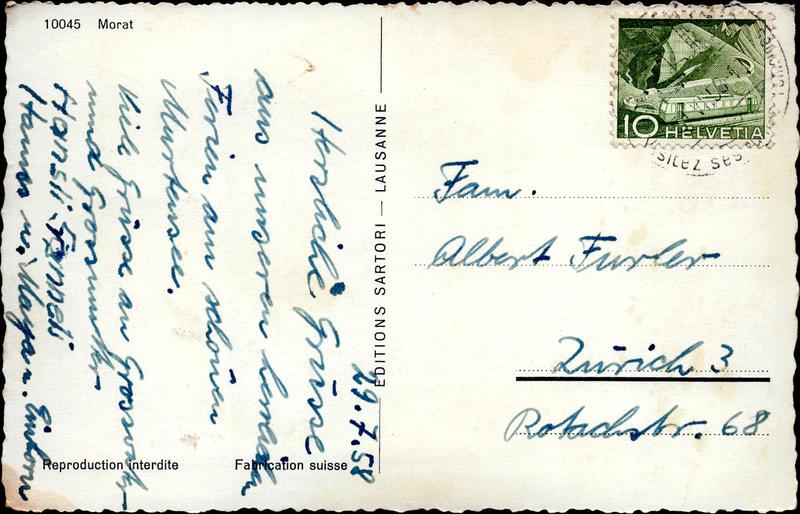 10045 Morat
29.7.58
Herzliche Grüsse
aus unseren
Ferien am schönen
Murtensee.
Viel Grüsse an Grossvater
und Grossmutter
Hansli
Hannes u.
EDITIONS SARTORI — LAUSANNE —
10 HELVETIA
VISITEZ SES
Fam.
Albert Furler
Zürich 3
Rotachstr. 68
Reproduction interdite
Fabrication suisse